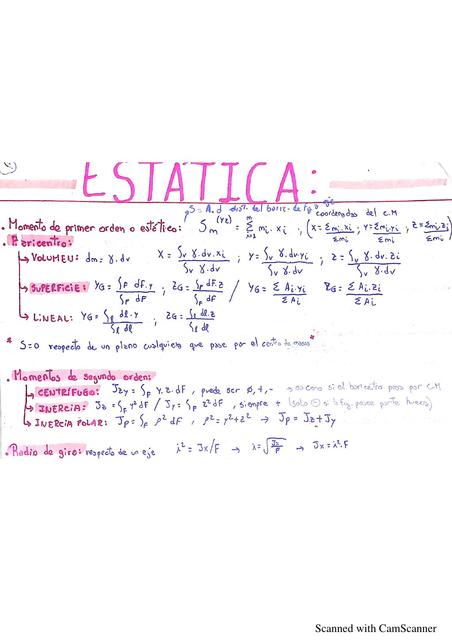 ESTATICA:
S = A.d dist. del baric. de fig a eje
coordenadas del C.M
• Momento de primer orden o estático: Sm^(yz) = Σ mi. xi , (x = Σmi.xi / Σmi ; y = Σmi.yi / Σmi ; z = Σmi.zi / Σmi)
• Baricentro:
↳ VOLUMEN: dm = γ.dv X = ∫v γ.dv.xi / ∫v γ.dv ; Y = ∫v γ.dv.yi / ∫v γ.dv ; Z = ∫v γ.dv.zi / ∫v γ.dv
↳ SUPERFICIE: YG = ∫F dF.y / ∫F dF ; ZG = ∫F dF.z / ∫F dF / YG = Σ Ai.yi / Σ Ai ZG = Σ Ai.zi / Σ Ai
↳ LINEAL: YG = ∫l dl.y / ∫l dl ; ZG = ∫l dl.z / ∫l dl
* S=0 respecto de un plano cualquiera que pase por el centro de masas *
• Momentos de segundo orden:
↳ CENTRÍFUGO: Jzy = ∫F y.z.dF , puede ser 0,+,- → es cero si el baricentro pasa por C.M
↳ INERCIA: Jz = ∫F y² dF / Jy = ∫F z² dF , siempre + (solo ⊖ si fig. posee parte hueca)
↳ INERCIA POLAR: Jp = ∫F ρ² dF , ρ² = y² + z² → Jp = Jz + Jy
• Radio de giro: respecto de un eje λ² = Jx/F → λ = √(Jx/F) → Jx = λ².F
Scanned with CamScanner